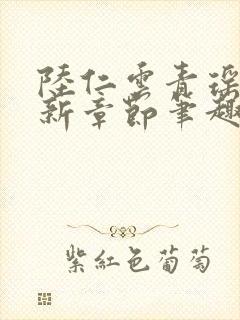 陸仁雲青瑤
新章節筆趣
紫紅色葡萄